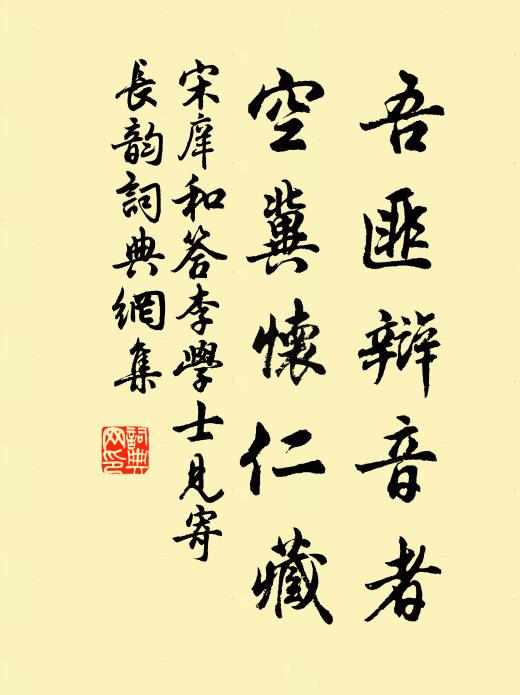 吾匪辯音者
空冀懷仁藏
宋庠和答李學士見寄
長韵詞典網集
詞典
网印